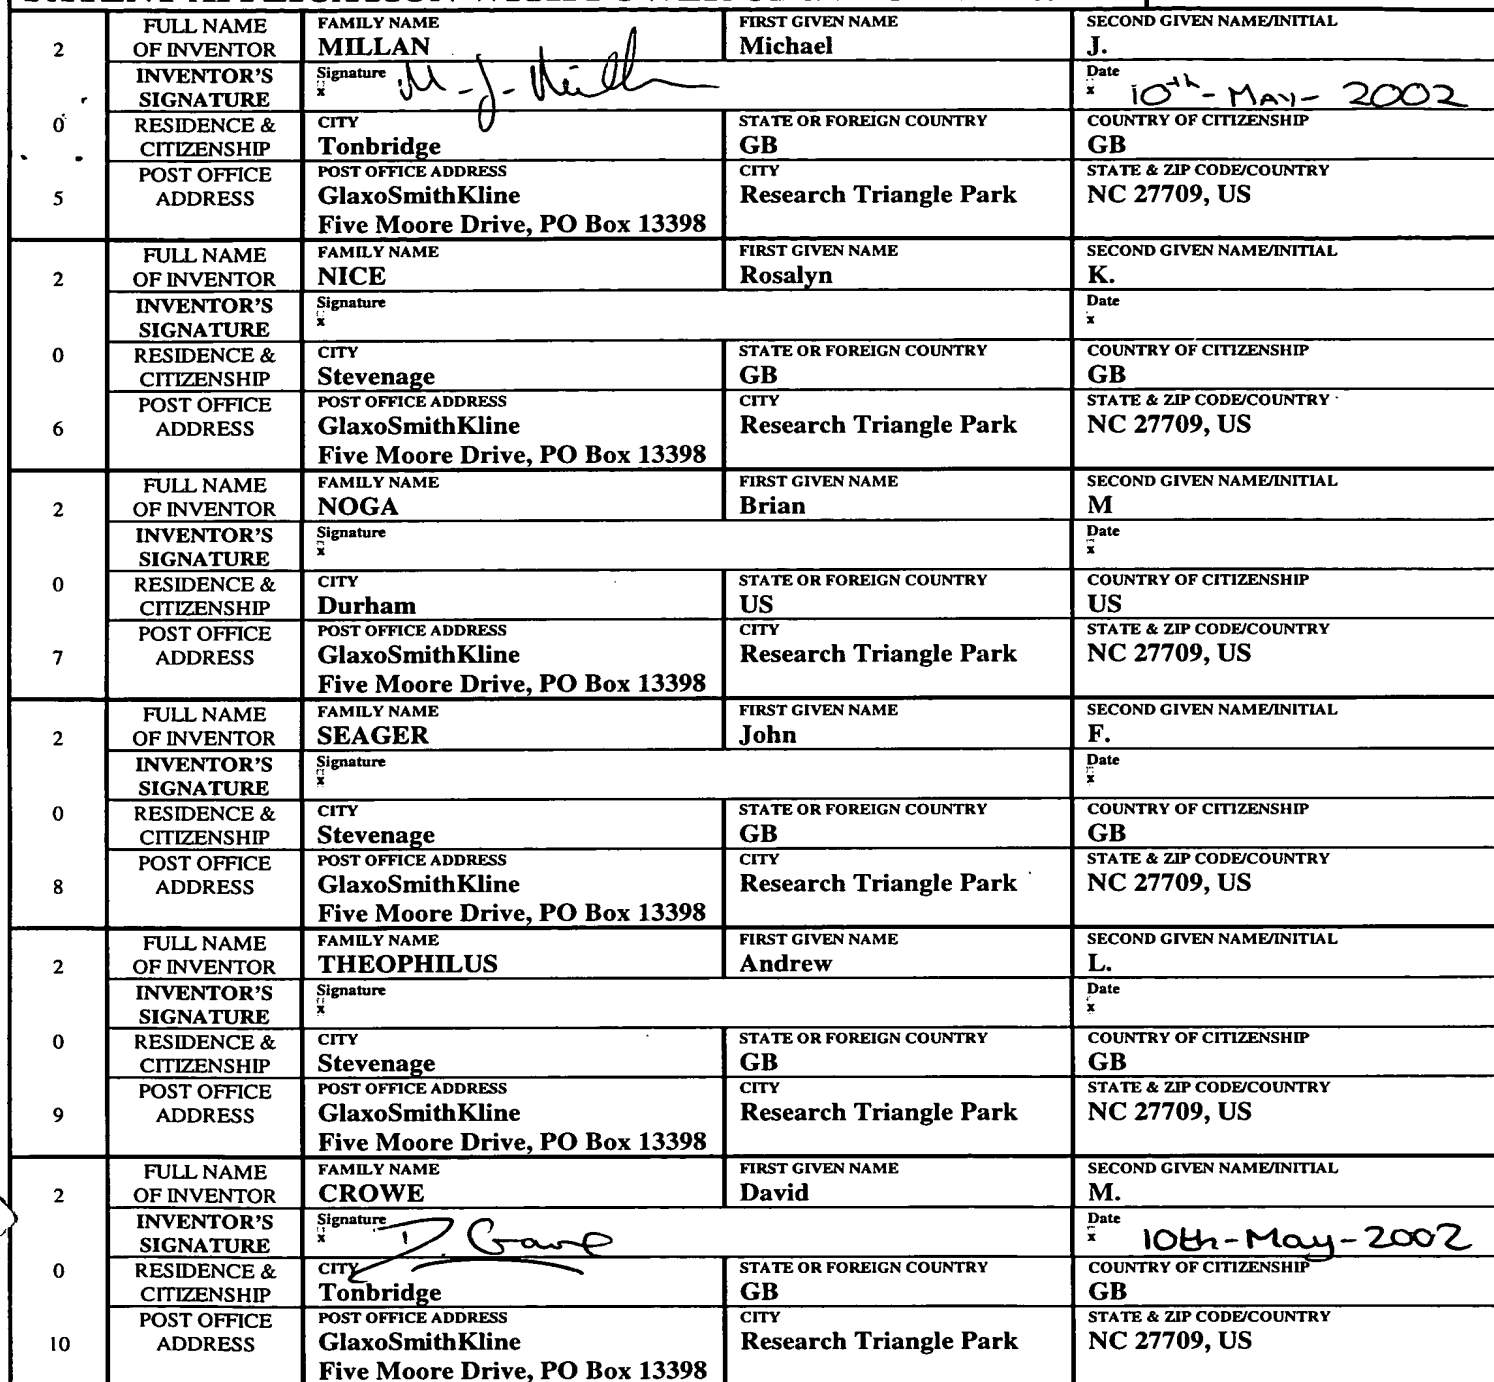 2 FULL NAME OF INVENTOR FAMILY NAME MILLAN FIRST GIVEN NAME Michael SECOND GIVEN NAME/INITIAL J.
INVENTOR'S SIGNATURE Signature x M-J-Mill Date x 10th-MAY-2002
0 RESIDENCE & CITIZENSHIP CITY Tonbridge STATE OR FOREIGN COUNTRY GB COUNTRY OF CITIZENSHIP GB
5 POST OFFICE ADDRESS POST OFFICE ADDRESS GlaxoSmithKline Five Moore Drive, PO Box 13398 CITY Research Triangle Park STATE & ZIP CODE/COUNTRY NC 27709, US
2 FULL NAME OF INVENTOR FAMILY NAME NICE FIRST GIVEN NAME Rosalyn SECOND GIVEN NAME/INITIAL K.
INVENTOR'S SIGNATURE Signature x Date x
0 RESIDENCE & CITIZENSHIP CITY Stevenage STATE OR FOREIGN COUNTRY GB COUNTRY OF CITIZENSHIP GB
6 POST OFFICE ADDRESS POST OFFICE ADDRESS GlaxoSmithKline Five Moore Drive, PO Box 13398 CITY Research Triangle Park STATE & ZIP CODE/COUNTRY NC 27709, US
2 FULL NAME OF INVENTOR FAMILY NAME NOGA FIRST GIVEN NAME Brian SECOND GIVEN NAME/INITIAL M
INVENTOR'S SIGNATURE Signature x Date x
0 RESIDENCE & CITIZENSHIP CITY Durham STATE OR FOREIGN COUNTRY US COUNTRY OF CITIZENSHIP US
7 POST OFFICE ADDRESS POST OFFICE ADDRESS GlaxoSmithKline Five Moore Drive, PO Box 13398 CITY Research Triangle Park STATE & ZIP CODE/COUNTRY NC 27709, US
2 FULL NAME OF INVENTOR FAMILY NAME SEAGER FIRST GIVEN NAME John SECOND GIVEN NAME/INITIAL F.
INVENTOR'S SIGNATURE Signature x Date x
0 RESIDENCE & CITIZENSHIP CITY Stevenage STATE OR FOREIGN COUNTRY GB COUNTRY OF CITIZENSHIP GB
8 POST OFFICE ADDRESS POST OFFICE ADDRESS GlaxoSmithKline Five Moore Drive, PO Box 13398 CITY Research Triangle Park STATE & ZIP CODE/COUNTRY NC 27709, US
2 FULL NAME OF INVENTOR FAMILY NAME THEOPHILUS FIRST GIVEN NAME Andrew SECOND GIVEN NAME/INITIAL L.
INVENTOR'S SIGNATURE Signature x Date x
0 RESIDENCE & CITIZENSHIP CITY Stevenage STATE OR FOREIGN COUNTRY GB COUNTRY OF CITIZENSHIP GB
9 POST OFFICE ADDRESS POST OFFICE ADDRESS GlaxoSmithKline Five Moore Drive, PO Box 13398 CITY Research Triangle Park STATE & ZIP CODE/COUNTRY NC 27709, US
2 FULL NAME OF INVENTOR FAMILY NAME CROWE FIRST GIVEN NAME David SECOND GIVEN NAME/INITIAL M.
INVENTOR'S SIGNATURE Signature x D. Crowe Date x 10th-May-2002
0 RESIDENCE & CITIZENSHIP CITY Tonbridge STATE OR FOREIGN COUNTRY GB COUNTRY OF CITIZENSHIP GB
10 POST OFFICE ADDRESS POST OFFICE ADDRESS GlaxoSmithKline Five Moore Drive, PO Box 13398 CITY Research Triangle Park STATE & ZIP CODE/COUNTRY NC 27709, US